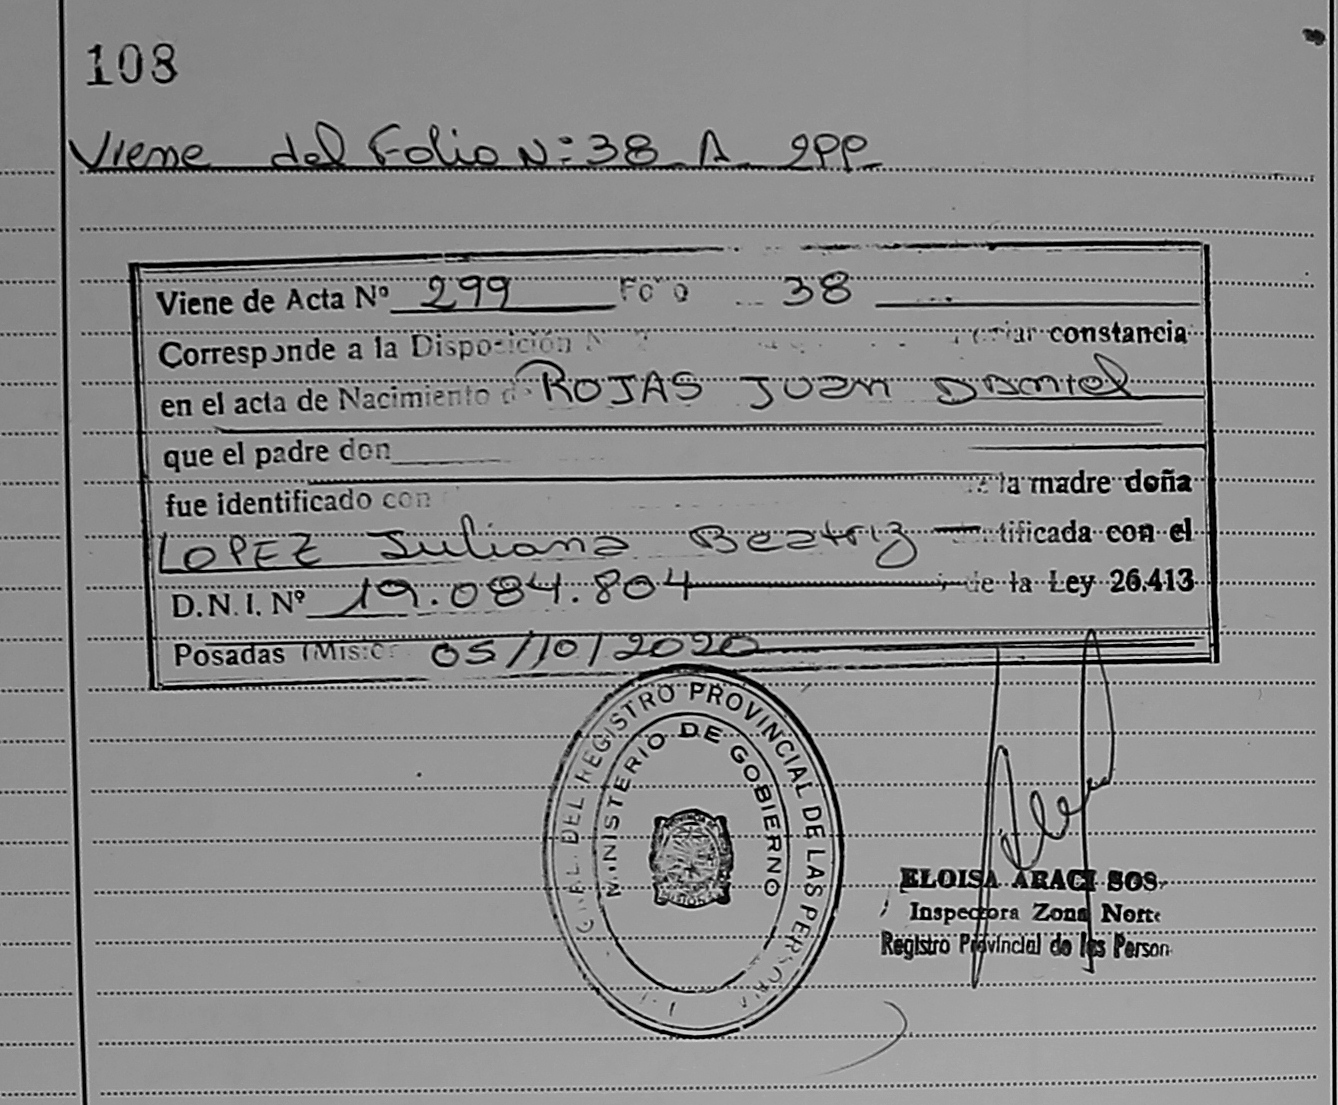 108
Viene del Folio N: 38 A
Viene de Acta Nº 299 Folio 38
Corresponde a la Disposición constancia
en el acta de Nacimiento ROJAS JUAN DANIEL
que el padre don
fue identificado con la madre doña
LOPEZ Juliana Beatriz tificada con el
D.N.I. Nº 19.084.804 de la Ley 26.413
Posadas 05/10/2020
DEL REGISTRO PROVINCIAL DE LAS PERSONAS
MINISTERIO DE GOBIERNO
ELOISA ARACI SOS
Inspectora Zona Norte
Registro Provincial de las Person